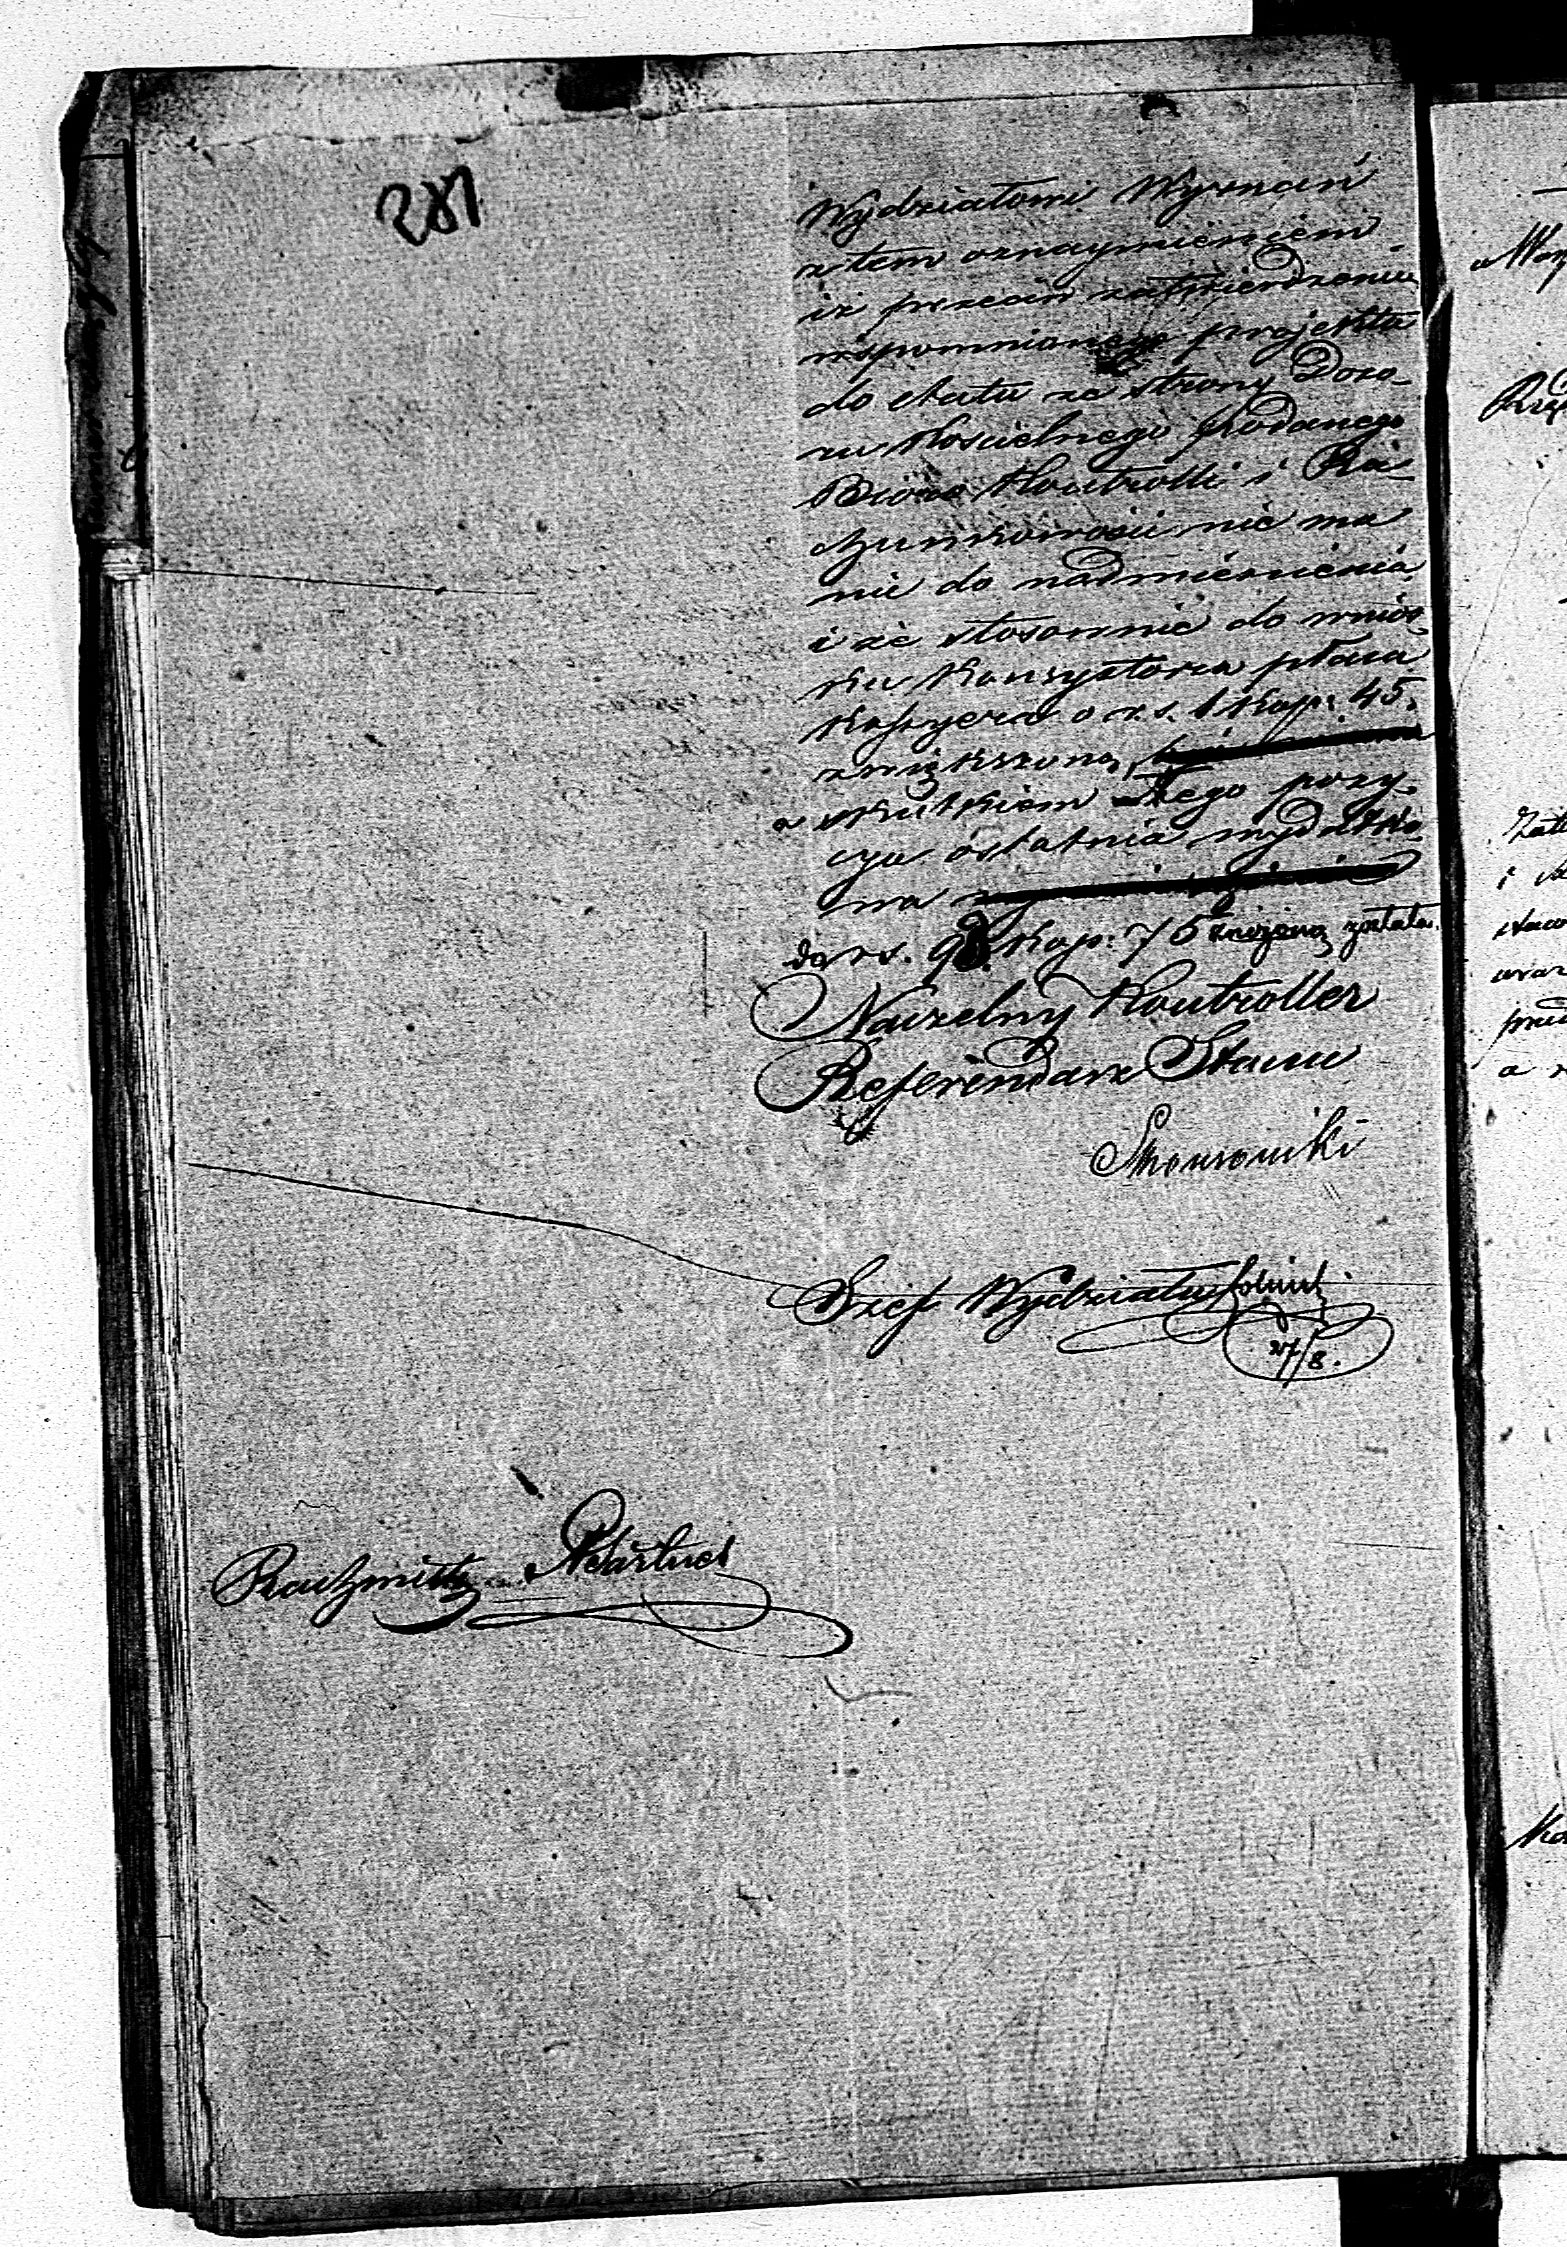 287
Wydziałowi Wyznań
z tem oznaymieniem
iż przeciw zatwierdzeniu
wspomnionego projektu
do etatu ze strony Dozo-
ru Kościelnego podanego
Bióro Kontrolli i Ra-
chunkowości nie ma
nic do nadmienienia
i że stosownie do wnios-
ku Konsystorza płaca
Kassyera o r.s. 1 kop: 45.
zwiększoną
a skutkiem tego pozy-
cya ostatnia wydatko-
wa
do rs. 98. kop: 75 zniżoną została.
Naczelny Kontroller
Referendarz Stanu
Szef Wydziału
27/8.
Rachmistrz